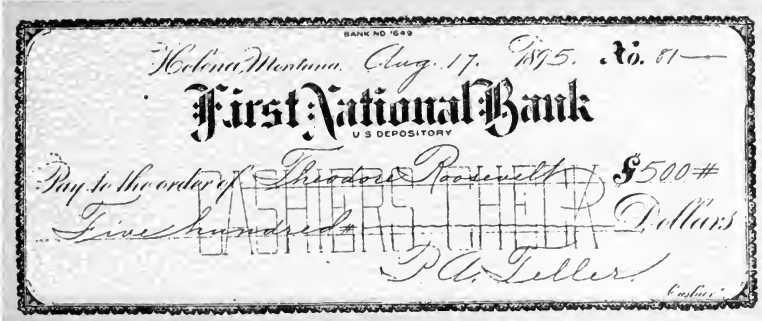 BANK NO 1649
Helena, Montana. Aug. 17. 1895. No. 81
First National Bank
U S DEPOSITORY
Pay to the order of Theodore Roosevelt $500#
CASHIERS CHECK
Five hundred# Dollars
P A. Teller
Cashier